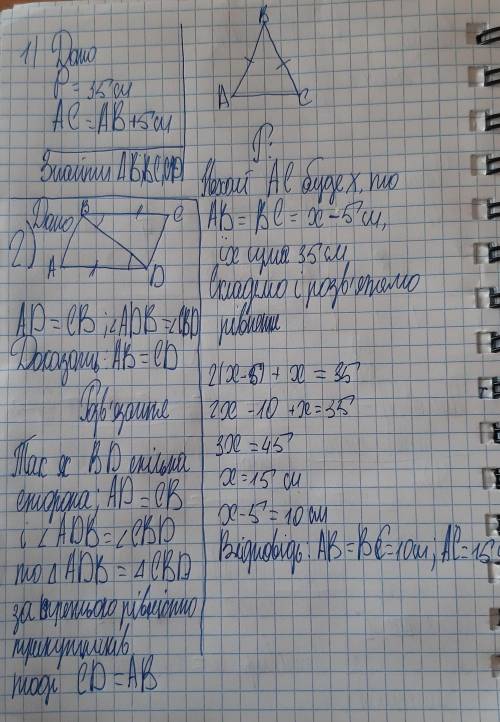 1) Дано
P = 35 см
AC = AB + 5 см
Знайти AB, BC,
B
A
C
Р:
Нехай AC буде x, то
AB = BC = x - 5 см,
їх сума 35 см
Складемо і розв'яжемо
рівняння
2(x-5) + x = 35
2x - 10 + x = 35
3x = 45
x = 15 см
x - 5 = 10 см
Відповідь: AB = BC = 10 см; AC = 15 с
2) Дано
B
C
A
D
AD = CB; ∠ADB = ∠CBD
Доказать: AB = CD
Розв'язання
Так як BD спільна
сторона; AD = CB
і ∠ADB = ∠CBD
то △ADB = △CBD
за рівністю
трикутників
тоді CD = AB